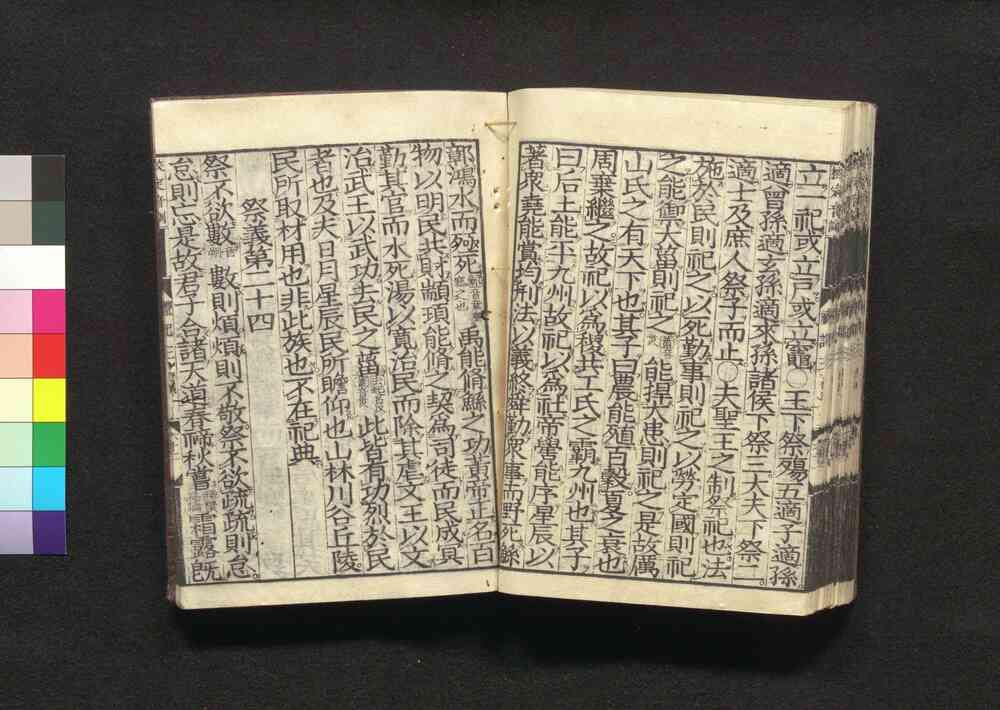 立一祀或立戸或立竈○王下祭殤五適子適孫
適曽孫適玄孫適來孫諸侯下祭三大夫下祭二
適士及庶人祭子而止○夫聖王之制祭祀也法
施於民則祀之以死勤事則祀之以勞定國則祀
之能御大菑則祀之能捍大患則祀之是故厲
山氏之有天下也其子曰農能殖百穀夏之衰也
周棄繼之故祀以為稷共工氏之霸九州也其子
曰后土能平九州故祀以為社帝嚳能序星辰以
著衆堯能賞均刑法以義終舜勤衆事而野死鯀
鄣鴻水而殛死禹能脩鯀之功黄帝正名百
物以明民共財顓頊能脩之契為司徒而民成冥
勤其官而水死湯以寛治民而除其虐文王以文
治武王以武功去民之菑此皆有功烈於民
者也及夫日月星辰民所瞻仰也山林川谷丘陵
民所取材用也非此族也不在祀典
祭義第二十四
祭不欲數數則煩煩則不敬祭不欲疏疏則怠
怠則忘是故君子合諸天道春禘秋嘗霜露既